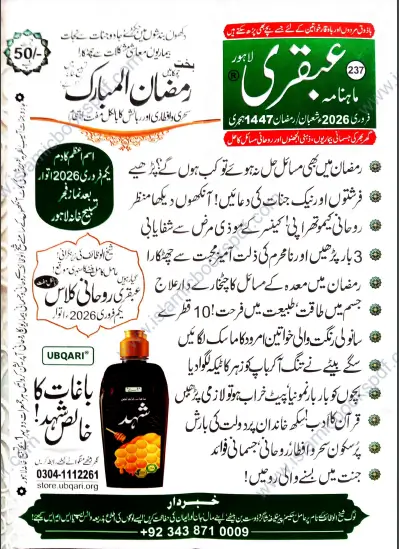 باذوق مردوں اور باوقار خواتین کے لئے جسے بچے بھی پڑھ سکتے ہیں
ماہنامہ
عبقری
لاہور
®
237
فروری 2026ء شعبان/رمضان 1447 ہجری
گھر بھر کی جسمانی بیماریوں، ذہنی الجھنوں اور روحانی مسائل کا حل
50/-
دکھوں بندشوں میں جکڑے جادو جنات کے نجات
بیماریوں معاشی مشکلات سے چھٹکارا
رمضان المبارک
سحری و افطاری اور رہائش کا بالکل مفت انتظام
اسم اعظم کا دم
یکم فروری 2026، اتوار
بعد نماز فجر
تسبیح خانہ لاہور
عبقری روحانی کلاس
یکم فروری 2026، اتوار
رمضان میں بھی مسائل حل نہ ہوئے تو کب ہوں گے؟ پڑھیے
فرشتوں اور نیک جنات کی دعائیں! آنکھوں دیکھا منظر
روحانی کیموتھراپی! کینسر کے موذی مرض سے شفایابی
3 بار پڑھیں اور نامحرم کی ذلت آمیز محبت سے چھٹکارا
رمضان میں معدہ کے مسائل کا چٹخارے دار علاج
جسم میں طاقت، طبیعت میں فرحت! 10 قطرے
سانولی رنگت والی خواتین امرود کا ماسک لگائیں
سگے بیٹے نے تنگ آکر باپ کو زہر کا ٹیکہ لگوا دیا
بچوں کو بار بار نمونیا، پیٹ خراب ہو تو لازمی پڑھیں
قرآن کا ادب! سکھ خاندان پر دولت کی بارش
پرسکون سحر و افطار! روحانی، جسمانی فوائد
جنت میں بسنے والی روحیں!
UBQARI®
شہد
باغات کا
خالص شہد!
0304-1112261
store.ubqari.org
خبردار
+92 343 871 0009